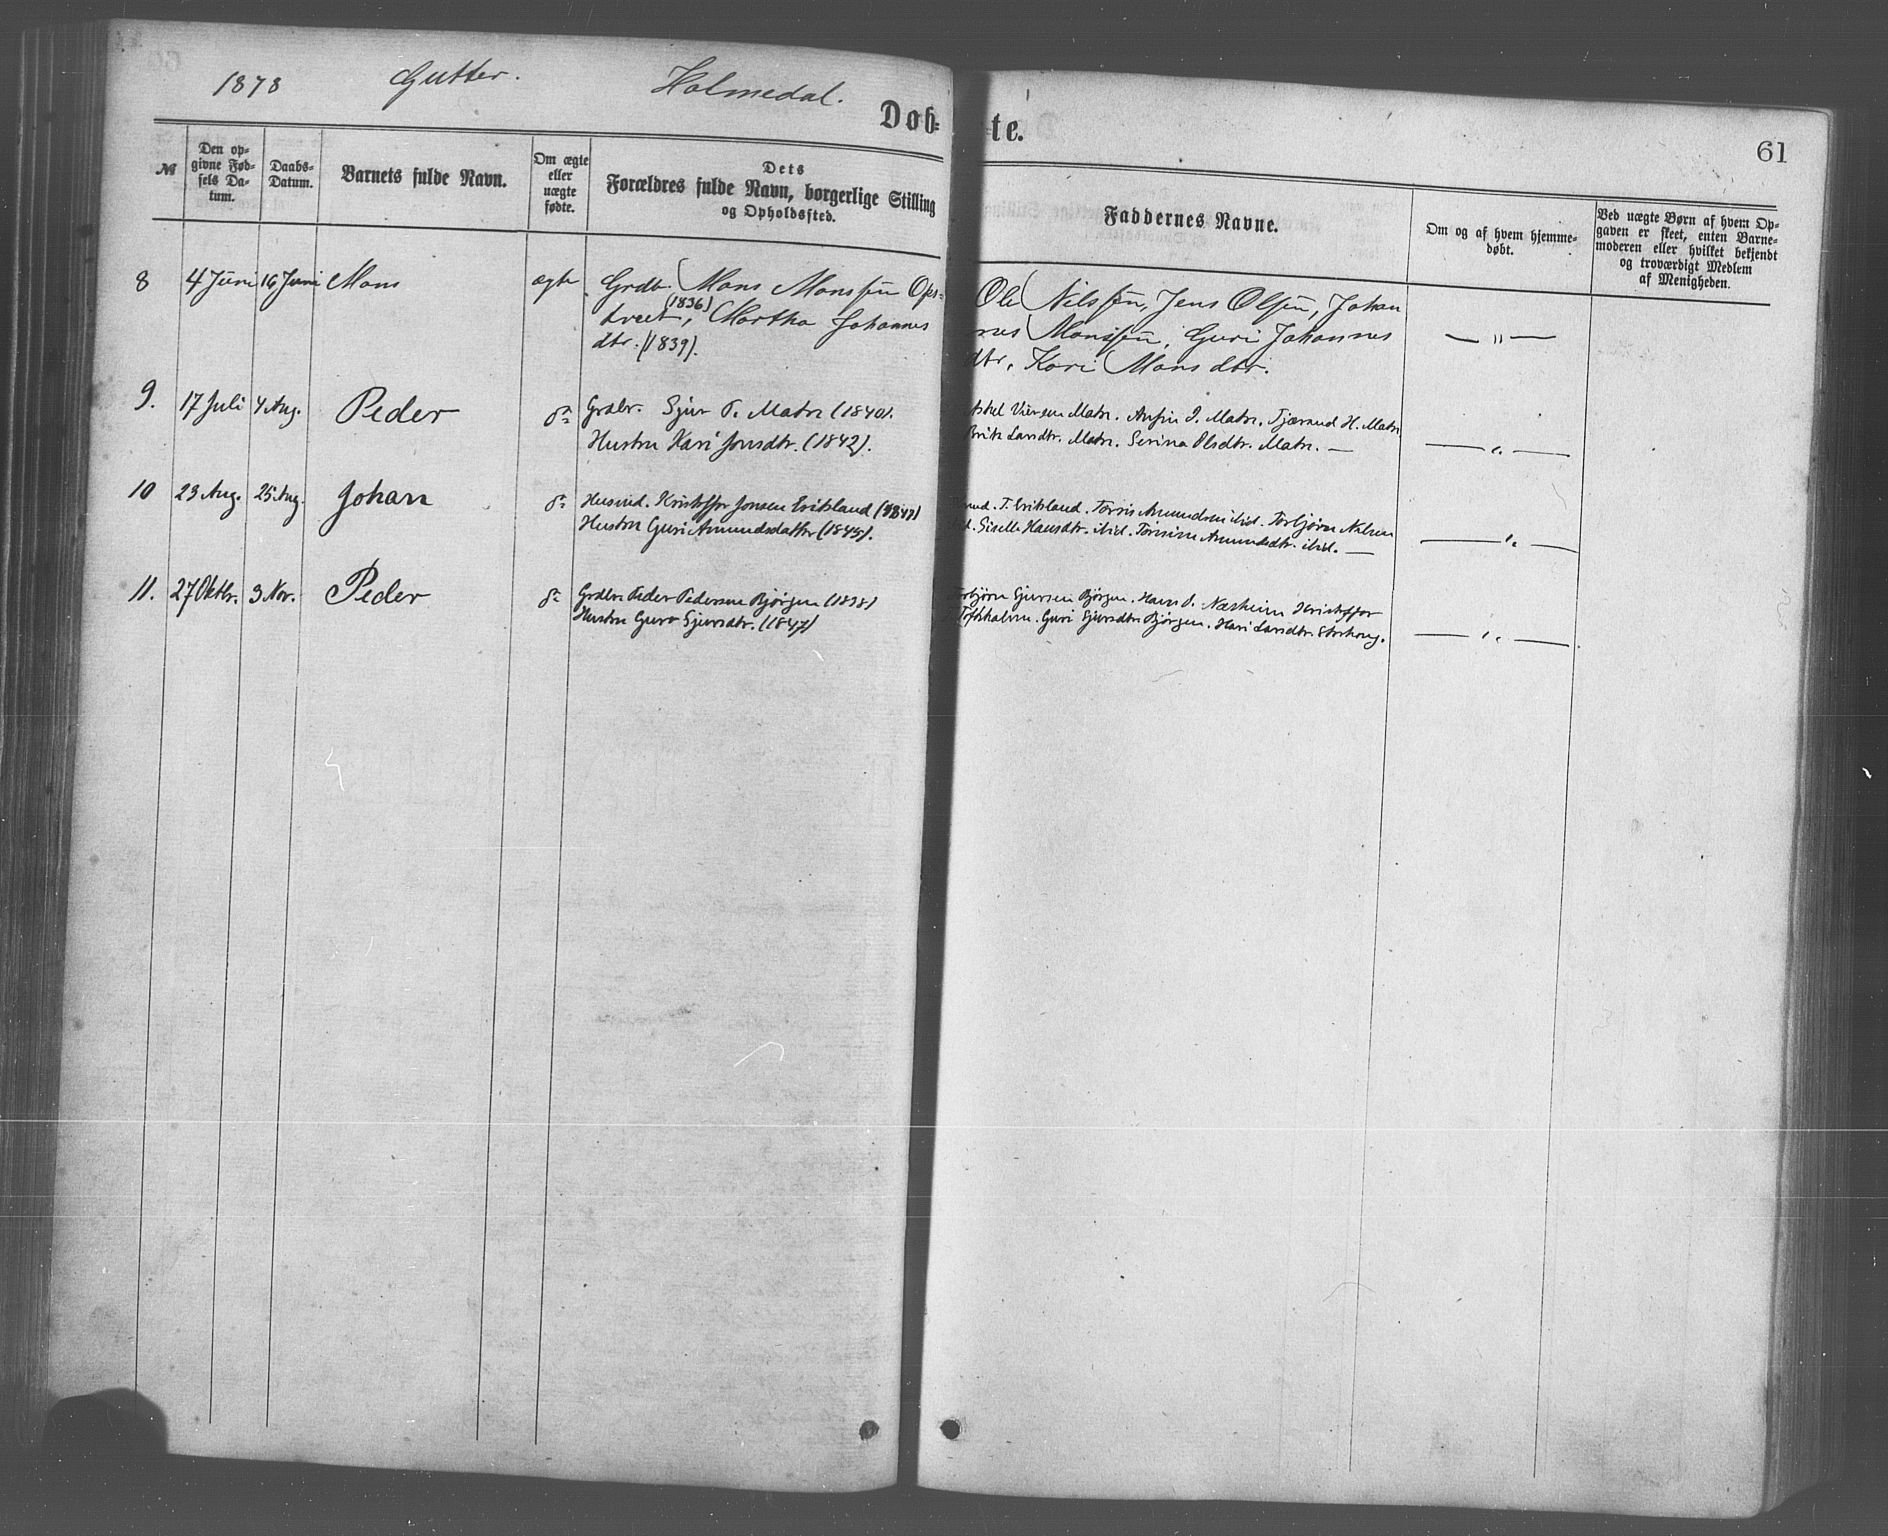 1878 Gutter. Holmedal.
Døb- te.
61
№
Den op-
givne Fød-
sels Da-
tum.
Daabs-
Datum.
Barnets fulde Navn.
Om ægte
eller
uægte
fødte.
Dets
Forældres fulde Navn, borgerlige Stilling
og Opholdssted.
Faddernes Navne.
Om og af hvem hjemme-
døbt.
Ved uægte Børn af hvem Op-
gaven er skeet, enten Barne-
moderen eller hvilket bekjendt
og troværdigt Medlem
af Menigheden.
8 4 Juni 16 Juni Mons ægte Grdb. Mons Monssøn Ops-
treet, (1836) Martha Johannes
dtr. (1839).
Ole Nilssøn, Jens Olsøn, Johan
nes Monssøn, Guri Johannes
dtr, Kari Mons dtr.
— " —
9. 17 Juli 4 Aug. Peder do Grdbr. Sjur T. Matre (1840).
Hustru Kari Jonsdtr. (1842).
Askel Viersen Matre. Anfin J. Matre. Tjærand H. Matre
Brite Larsdtr. Matre. Serina Olsdtr. Matre. —
— " —
10 23 Aug. 25 Aug. Johan do Husmd. Kristoffer Jonsen Eriksland (1847)
Hustru Guri Amundsdatter (1845).
T. Eriksland. Torris Amundsen ibid. Torbjørn Nilsen
Giselle Hansdtr. ibid. Torisine Amundsdtr. ibid. —
— " —
11. 27 Oktbr. 3 Nov. Peder do Grdbr. Peder Pedersen Bjørgen (1838)
Hustru Guro Sjursdtr. (1847)
Torbjørn Sjursen Bjørgen. Hans P. Næsheim Kristoffer
Toftekalven. Guri Sjursdtr. Bjørgen. Kari Larsdtr. Storhoug.
— " —